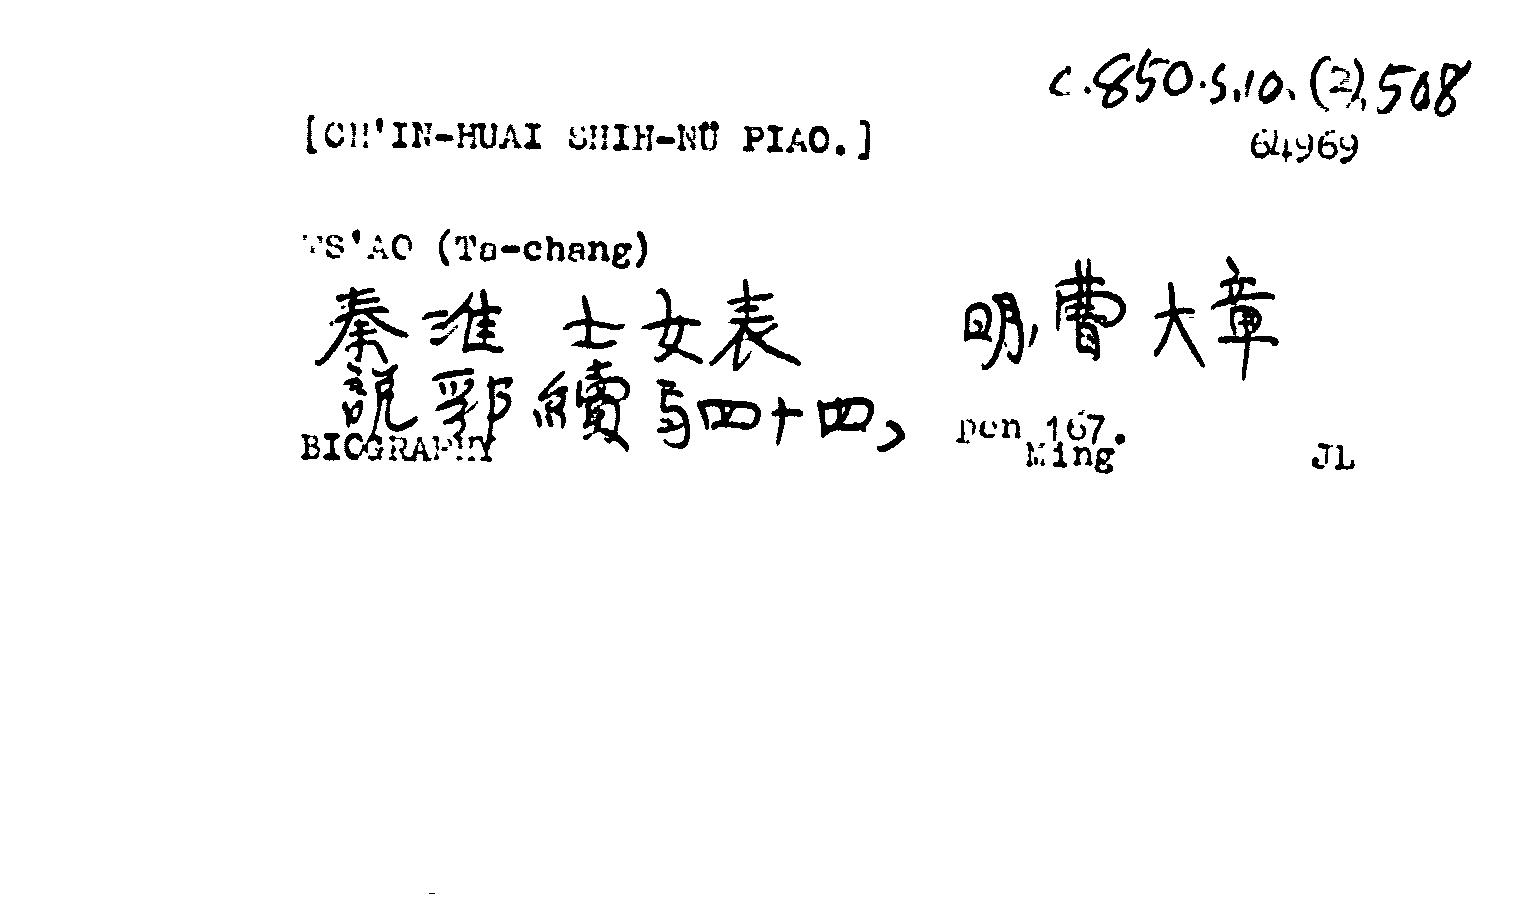 c.850.s.10.(2).508
[CH'IN-HUAI SHIH-NÜ PIAO.] 64969
TS'AO (Ta-chang)
秦淮 士女表 明,曹大章
說郛續弓四十四, pen 167.
BIOGRAPHY Ming JL